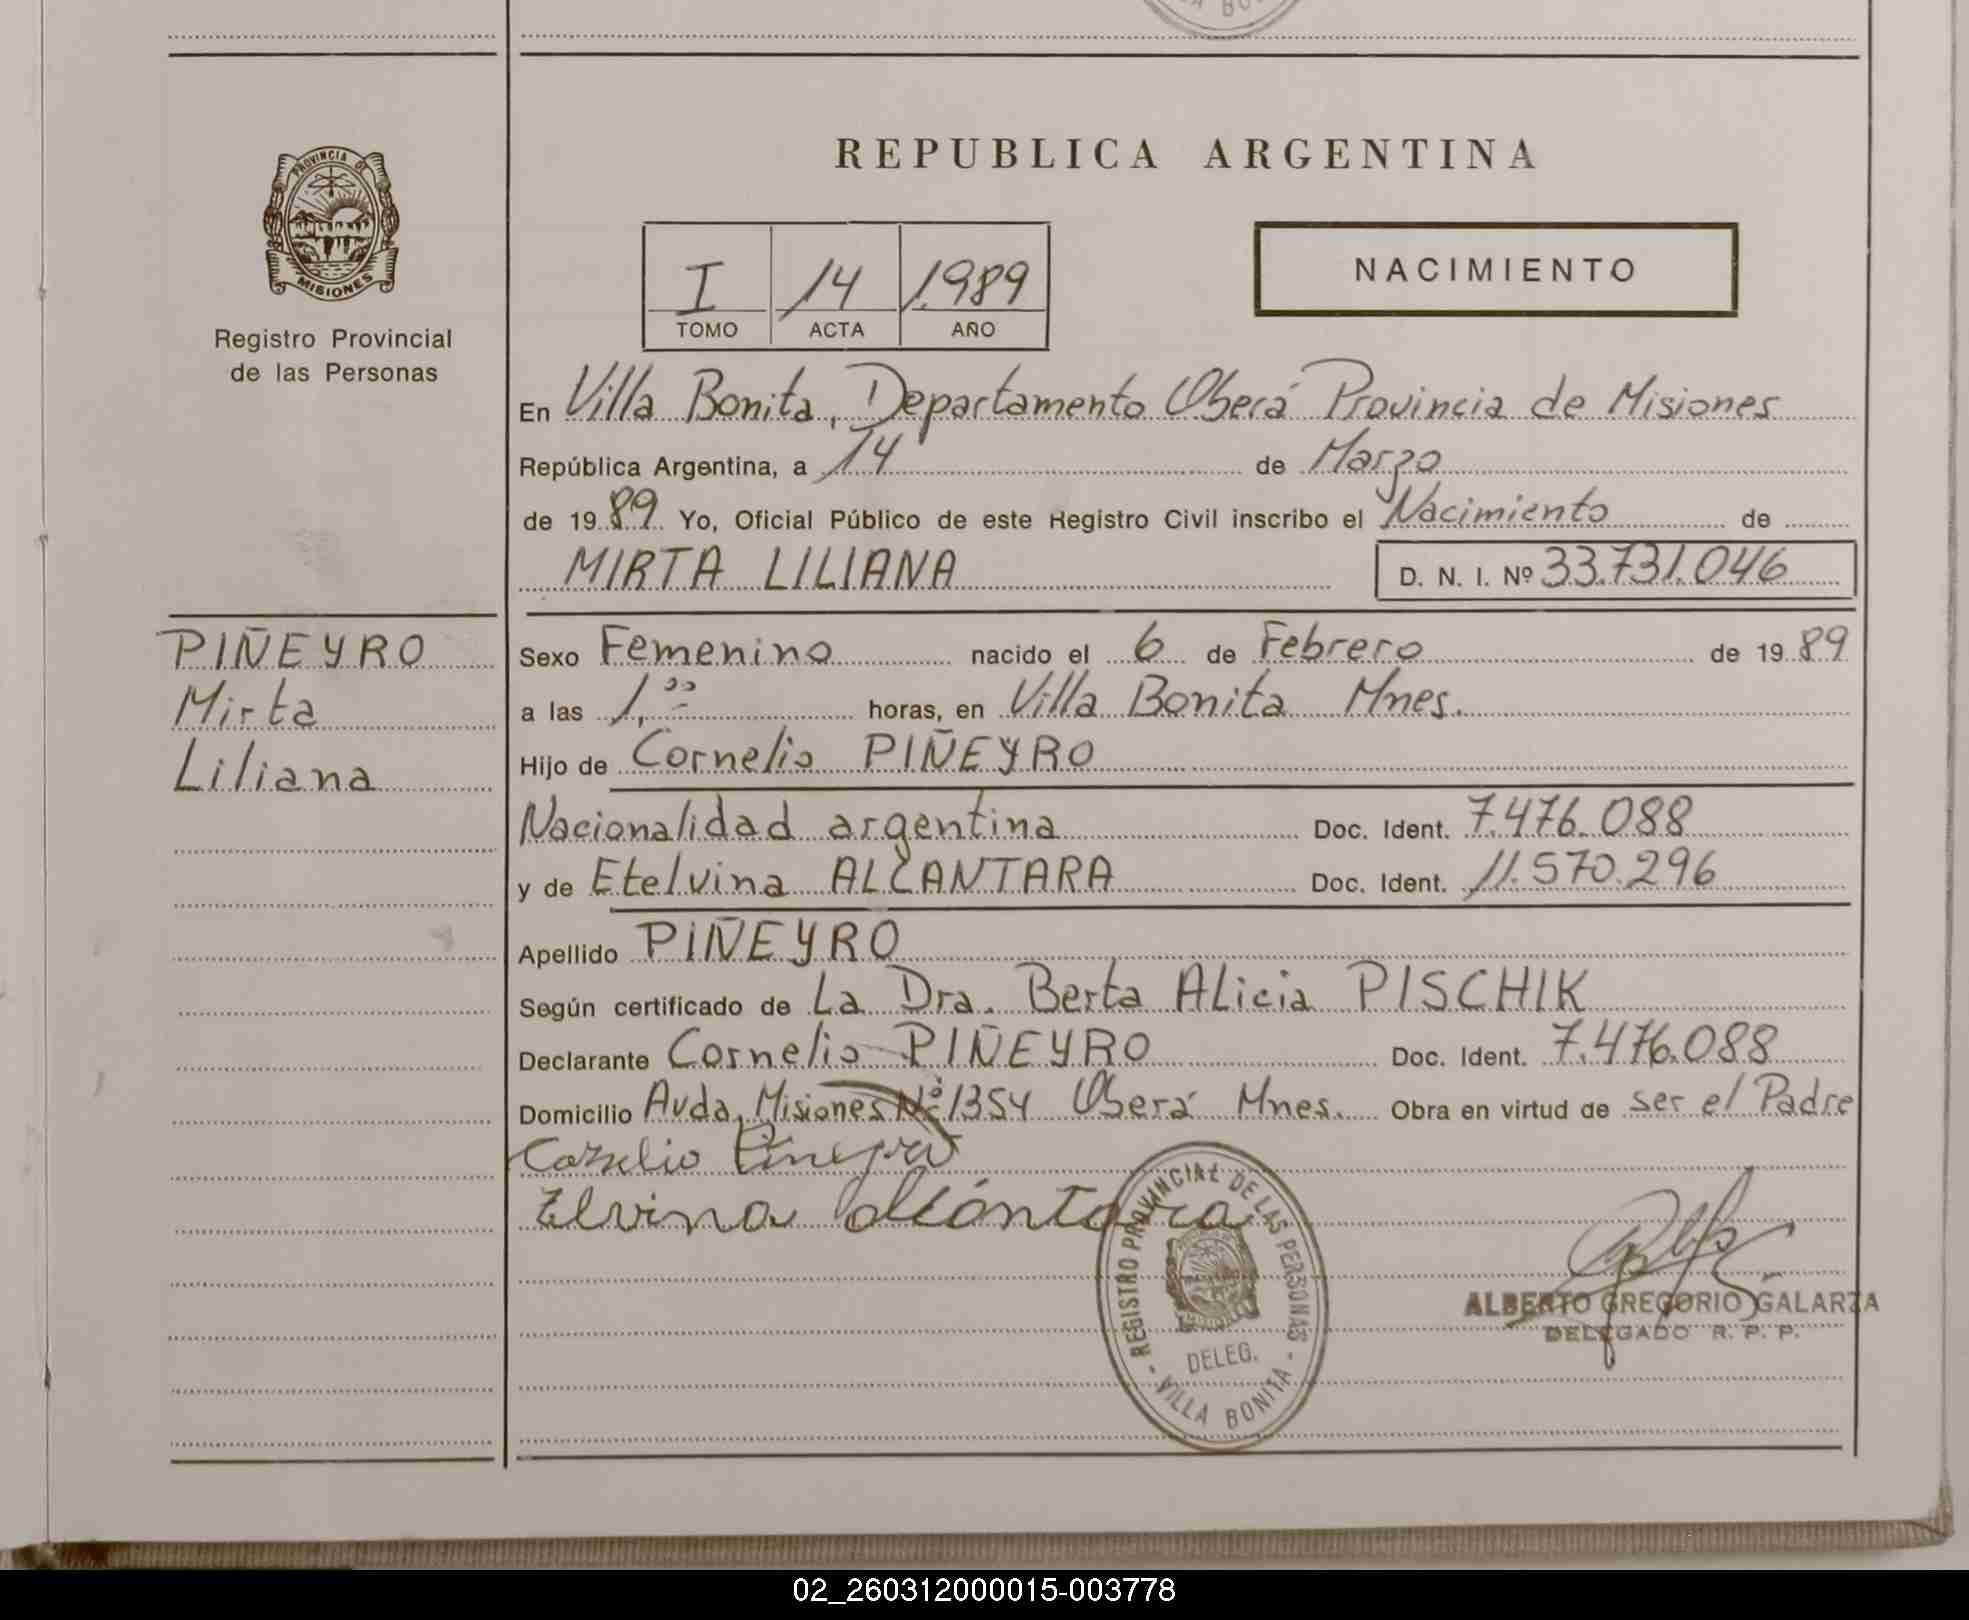 LLA BO
PROVINCIA DE
MISIONES
Registro Provincial
de las Personas
REPUBLICA ARGENTINA
I 14 1.989
TOMO ACTA AÑO
NACIMIENTO
En Villa Bonita, Departamento Oberá Provincia de Misiones
República Argentina, a 14 de Marzo
de 1989 Yo, Oficial Público de este Registro Civil inscribo el Nacimiento de
MIRTA LILIANA D. N. I. Nº 33.731.046
PIÑEYRO
Mirta
Liliana
Sexo Femenino nacido el 6 de Febrero de 1989
a las 1,00 horas, en Villa Bonita Mnes.
Hijo de Cornelio PIÑEYRO
Nacionalidad argentina Doc. Ident. 7.476.088
y de Etelvina ALCANTARA Doc. Ident. 11.570.296
Apellido PIÑEYRO
Según certificado de La Dra. Berta ALicia PISCHIK
Declarante Cornelio PIÑEYRO Doc. Ident. 7.476.088
Domicilio Avda. Misiones Nº 1354 Oberá Mnes. Obra en virtud de ser el Padre
Cornelio Pineyro
Elvina alcántara
REGISTRO PROVINCIAL DE LAS PERSONAS
DELEG.
- VILLA BONITA -
ALBERTO GREGORIO GALARZA
DELEGADO R. P. P.
02_260312000015-003778